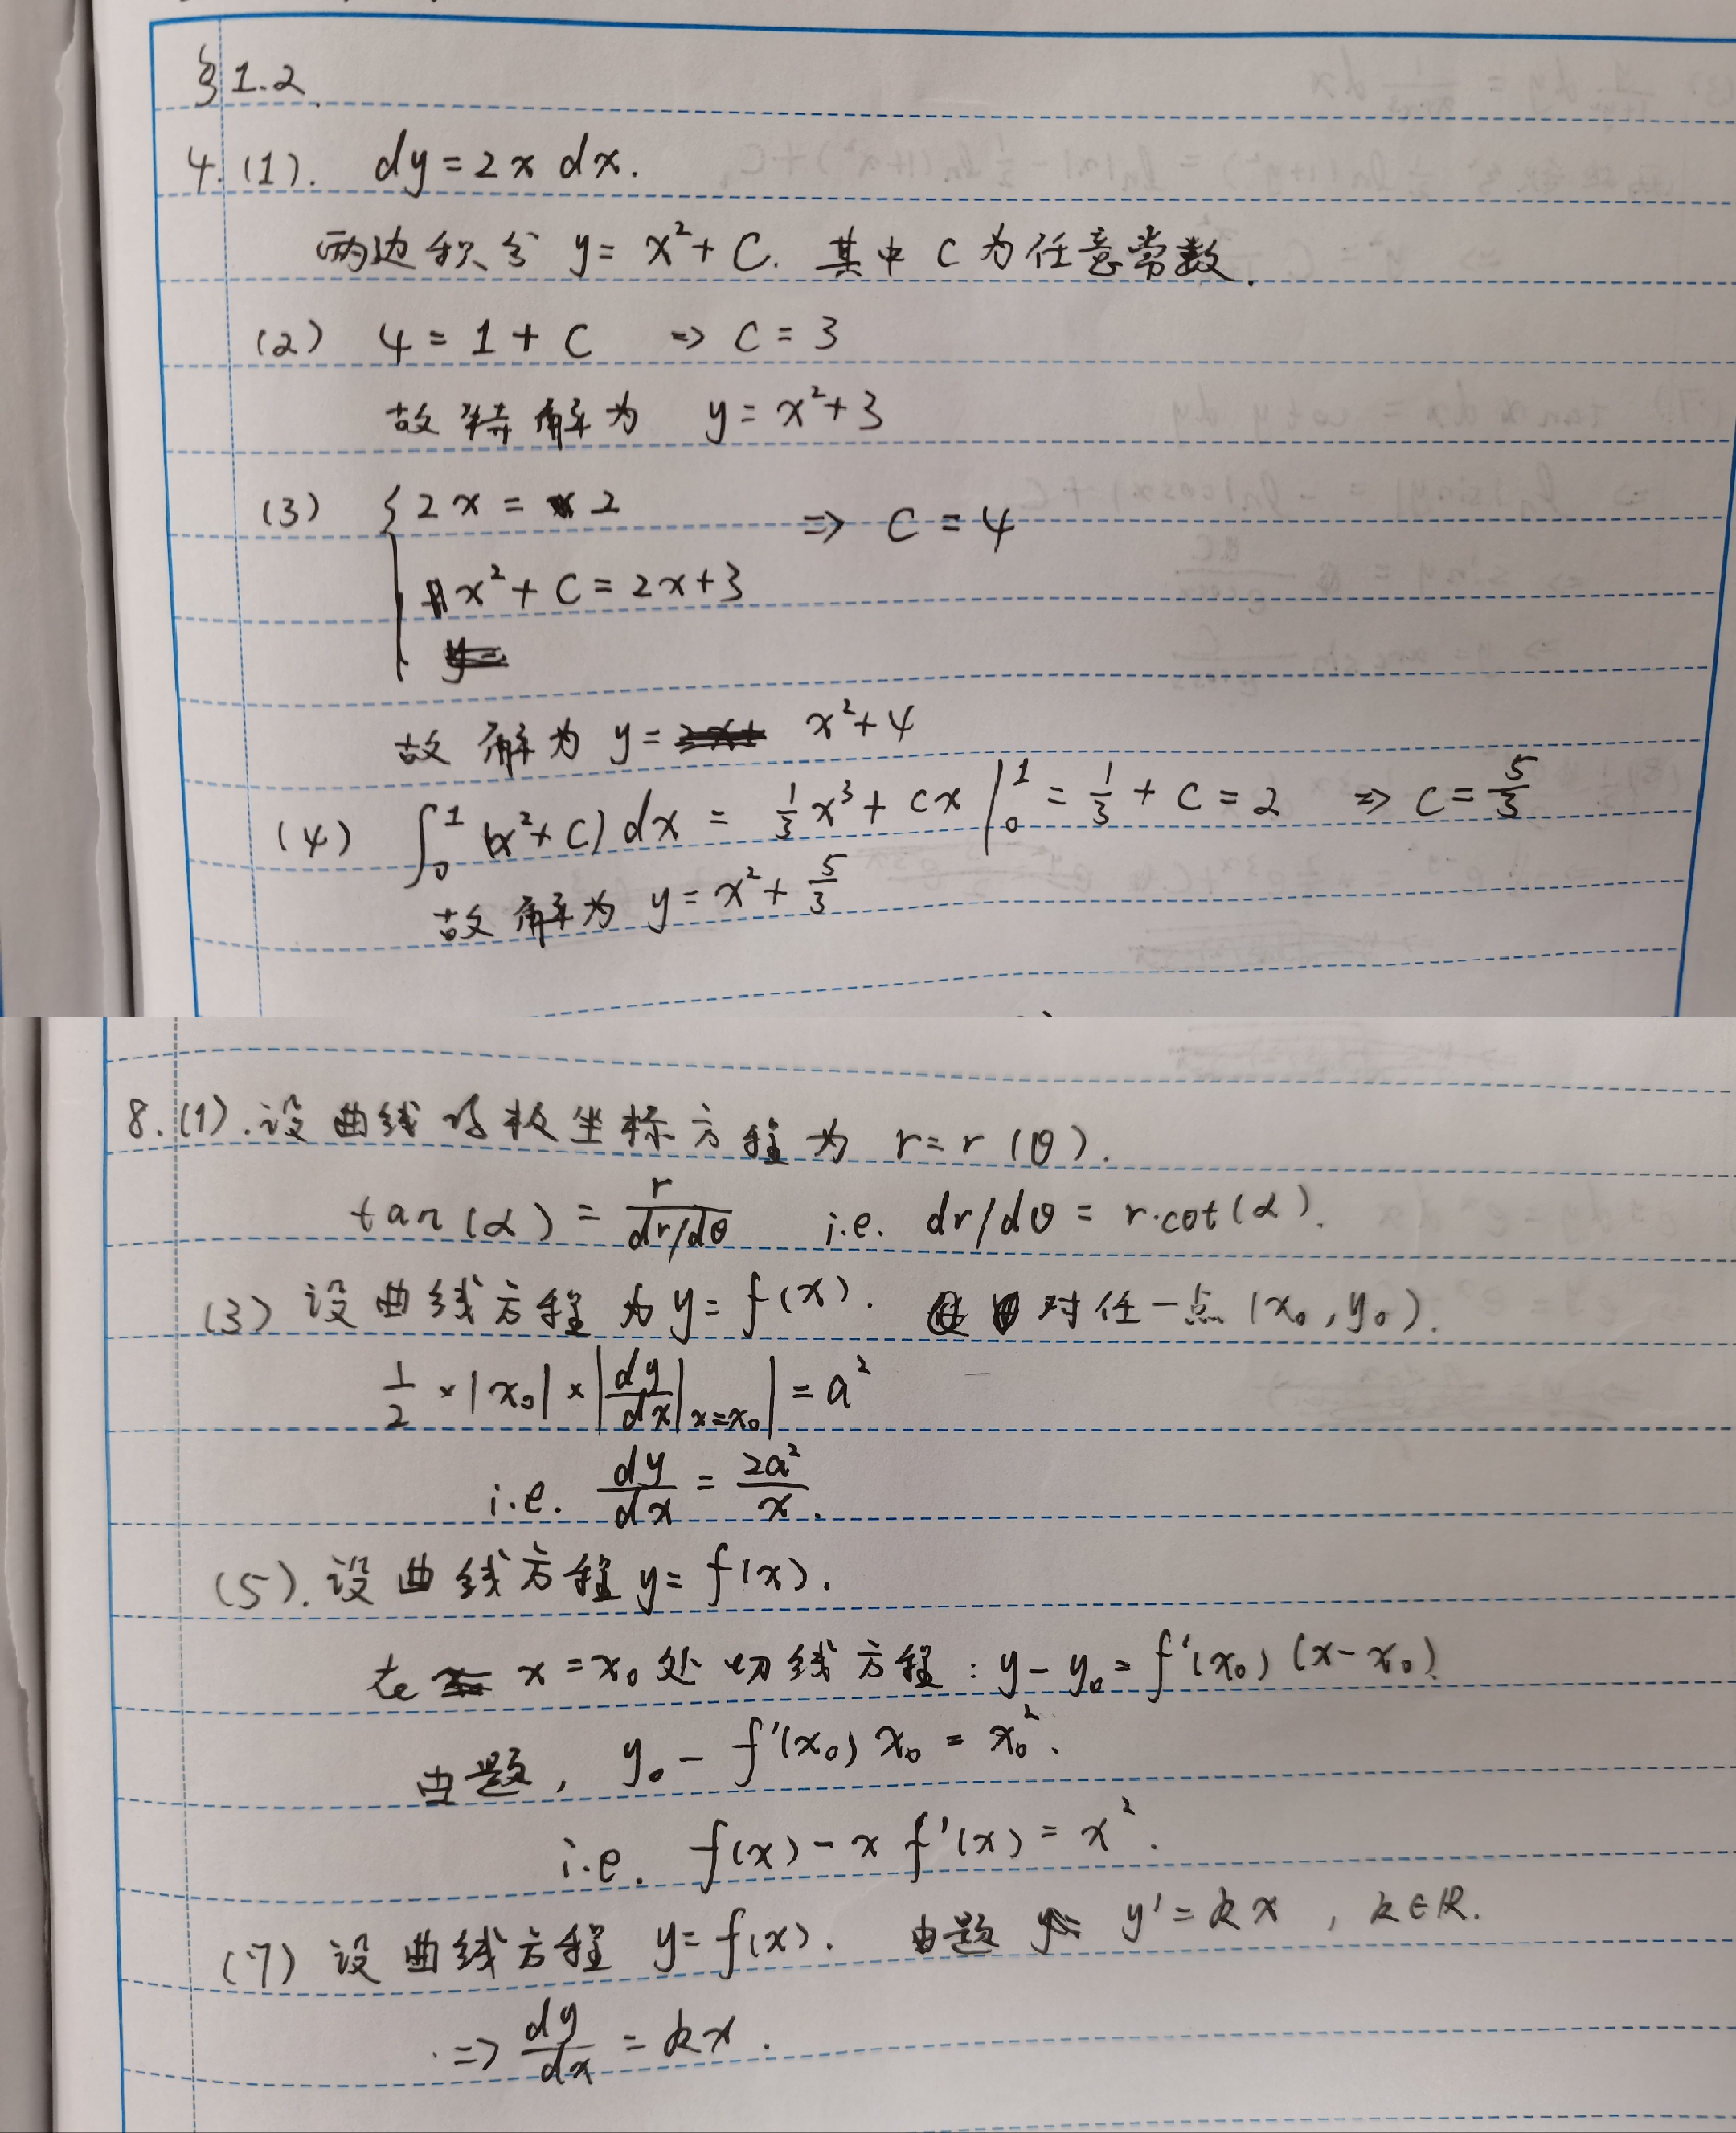 §1.2
4.(1). dy = 2x dx.
两边积分 y = x² + C. 其中 C 为任意常数.
(2) 4 = 1 + C ⇒ C = 3
故特解为 y = x² + 3
(3) { 2x = 2 ⇒ C = 4
x² + C = 2x + 3
故解为 y = x² + 4
(4) ∫₀¹ (x² + C) dx = 1/3 x³ + Cx |₀¹ = 1/3 + C = 2 ⇒ C = 5/3
故解为 y = x² + 5/3
8.(1). 设曲线的极坐标方程为 r = r(θ).
tan(α) = r/(dr/dθ) i.e. dr/dθ = r·cot(α).
(3) 设曲线方程为 y = f(x). 对任一点 (x₀, y₀).
1/2 × |x₀| × |dy/dx|ₓ₌ₓ₀| = a²
i.e. dy/dx = 2a²/x.
(5). 设曲线方程 y = f(x).
在 x = x₀ 处切线方程: y - y₀ = f'(x₀)(x - x₀).
由题, y₀ - f'(x₀) x₀ = x₀².
i.e. f(x) - x f'(x) = x².
(7) 设曲线方程 y = f(x). 由题 y' = kx, k∈R.
⇒ dy/dx = kx.